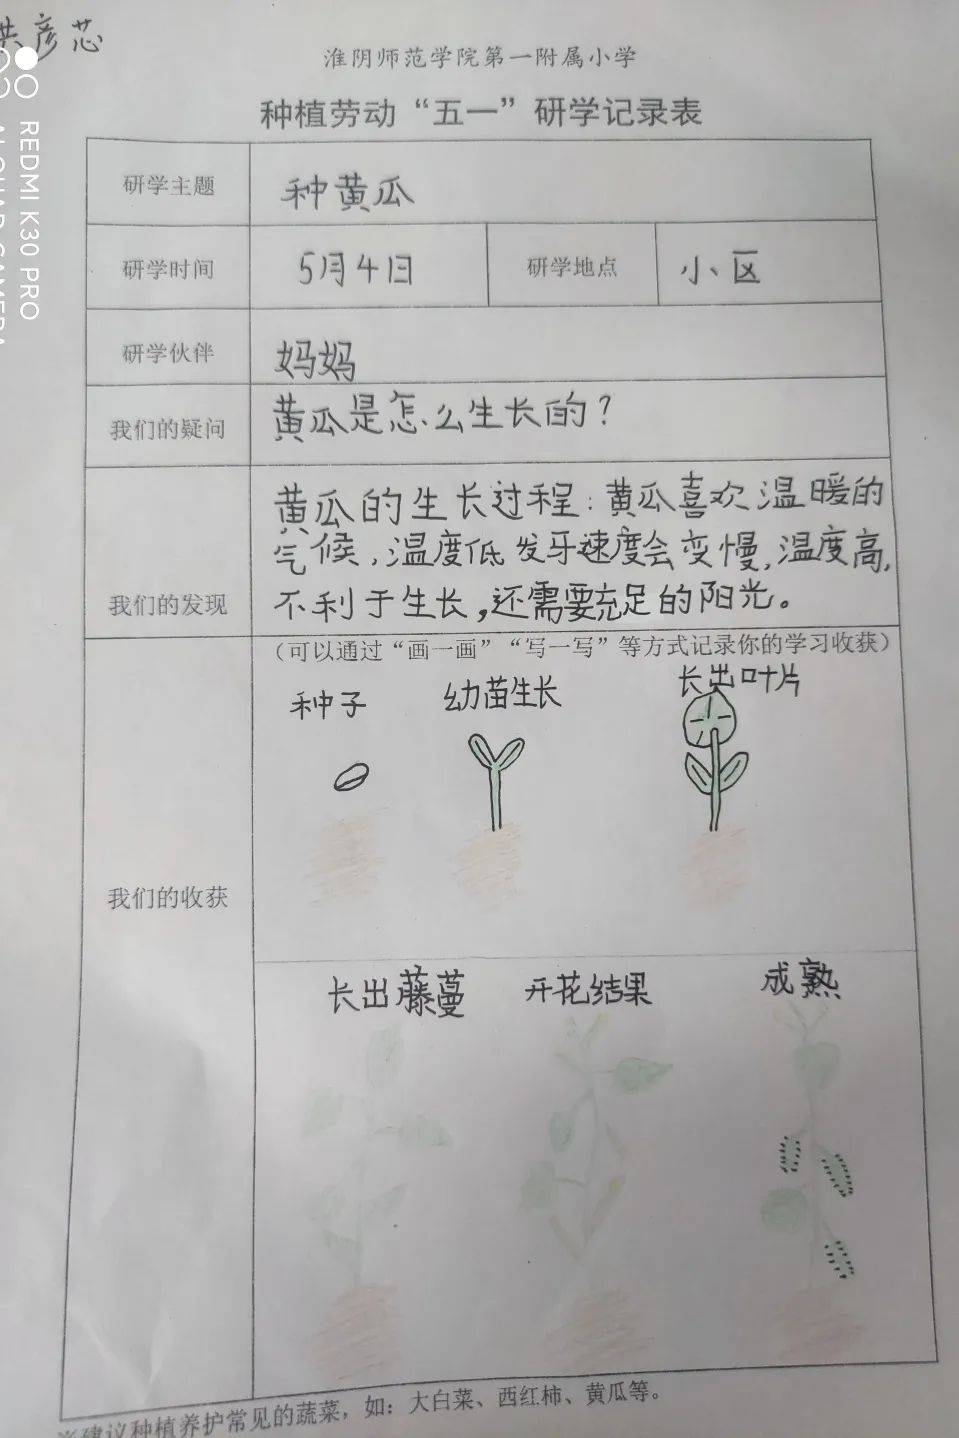 洪彦芯
淮阴师范学院第一附属小学
种植劳动“五一”研学记录表
研学主题 种黄瓜
研学时间 5月4日 研学地点 小区
研学伙伴 妈妈
我们的疑问 黄瓜是怎么生长的？
黄瓜的生长过程：黄瓜喜欢温暖的
气候，温度低发牙速度会变慢，温度高，
我们的发现 不利于生长，还需要充足的阳光。
（可以通过“画一画”“写一写”等方式记录你的学习收获）
种子 幼苗生长 长出叶片
我们的收获
长出藤蔓 开花结果 成熟
※建议种植养护常见的蔬菜，如：大白菜、西红柿、黄瓜等。
REDMI K30 PRO
AI QUAD CAMERA